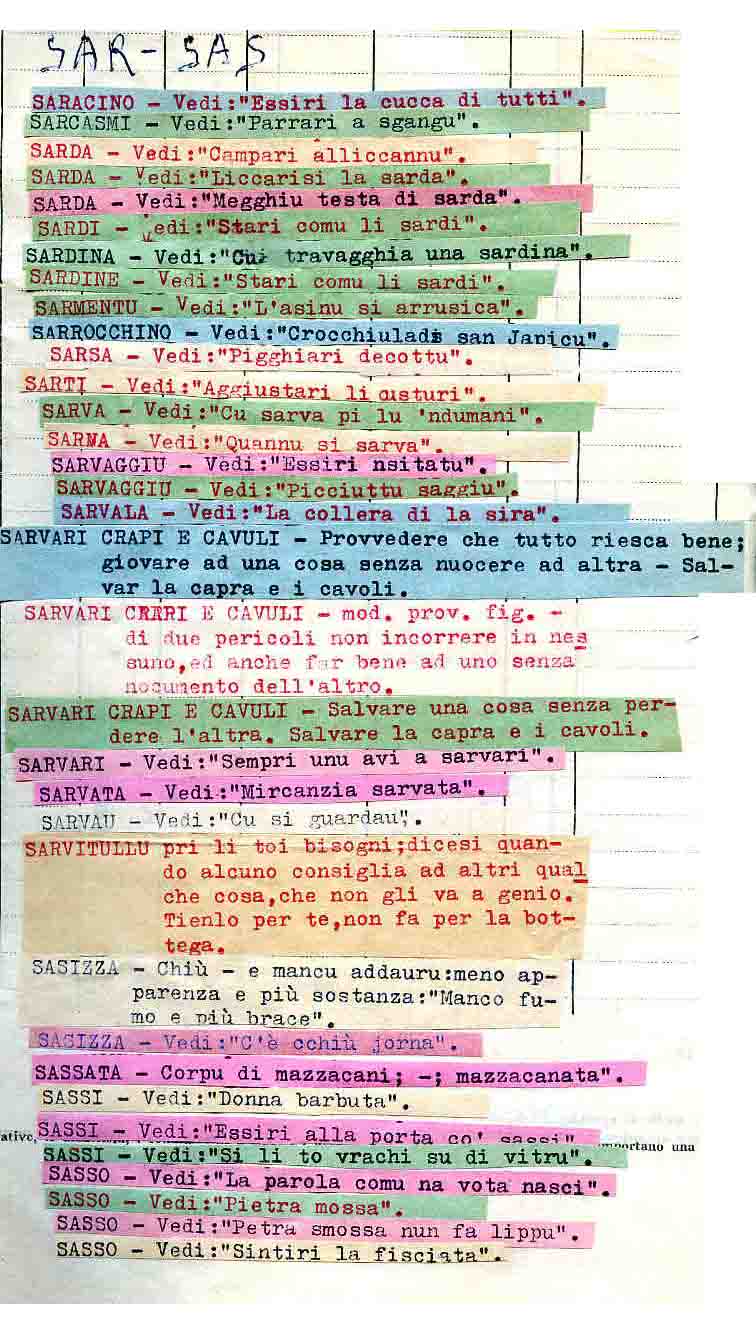 SAR-SAS
SARACINO - Vedi:"Essiri la cucca di tutti".
SARCASMI - Vedi:"Parrari a sgangu".
SARDA - Vedi:"Campari alliccannu".
SARDA - Vedi:"Liccarisi la sarda".
SARDA - Vedi:"Megghiu testa di sarda".
SARDI - Vedi:"Stari comu li sardi".
SARDINA - Vedi:"Cui travagghia una sardina".
SARDINE - Vedi:"Stari comu li sardi".
SARMENTU - Vedi:"L'asinu si arrusica".
SARROCCHINO - Vedi:"Crocchiuladi san Japicu".
SARSA - Vedi:"Pigghiari decottu".
SARTI - Vedi:"Aggiustari li custuri".
SARVA - Vedi:"Cu sarva pi lu 'ndumani".
SARVA - Vedi:"Quannu si sarva".
SARVAGGIU - Vedi:"Essiri nsitatu".
SARVAGGIU - Vedi:"Picciuttu saggiu".
SARVALA - Vedi:"La collera di la sira".
SARVARI CRAPI E CAVULI - Provvedere che tutto riesca bene;
giovare ad una cosa senza nuocere ad altra - Sal-
var la capra e i cavoli.
SARVARI CRAPI E CAVULI - mod. prov. fig. -
di due pericoli non incorrere in nes
suno,ed anche far bene ad uno senza
nocumento dell'altro.
SARVARI CRAPI E CAVULI - Salvare una cosa senza per-
dere l'altra. Salvare la capra e i cavoli.
SARVARI - Vedi:"Sempri unu avi a sarvari".
SARVATA - Vedi:"Mircanzia sarvata".
SARVAU - Vedi:"Cu si guardau".
SARVITULLU pri li toi bisogni;dicesi quan-
do alcuno consiglia ad altri qual
che cosa,che non gli va a genio.
Tienlo per te,non fa per la bot-
tega.
SASIZZA - Chiù - e mancu addauru:meno ap-
parenza e più sostanza:"Manco fu-
mo e più brace".
SASIZZA - Vedi:"C'è cchiù jorna".
SASSATA - Corpu di mazzacani; -; mazzacanata".
SASSI - Vedi:"Donna barbuta".
SASSI - Vedi:"Essiri alla porta co' sassi"
ative, portano una
SASSI - Vedi:"Si li to vrachi su di vitru".
SASSO - Vedi:"La parola comu na vota nasci".
SASSO - Vedi:"Pietra mossa".
SASSO - Vedi:"Petra smossa nun fa lippu".
SASSO - Vedi:"Sintiri la fisciata".